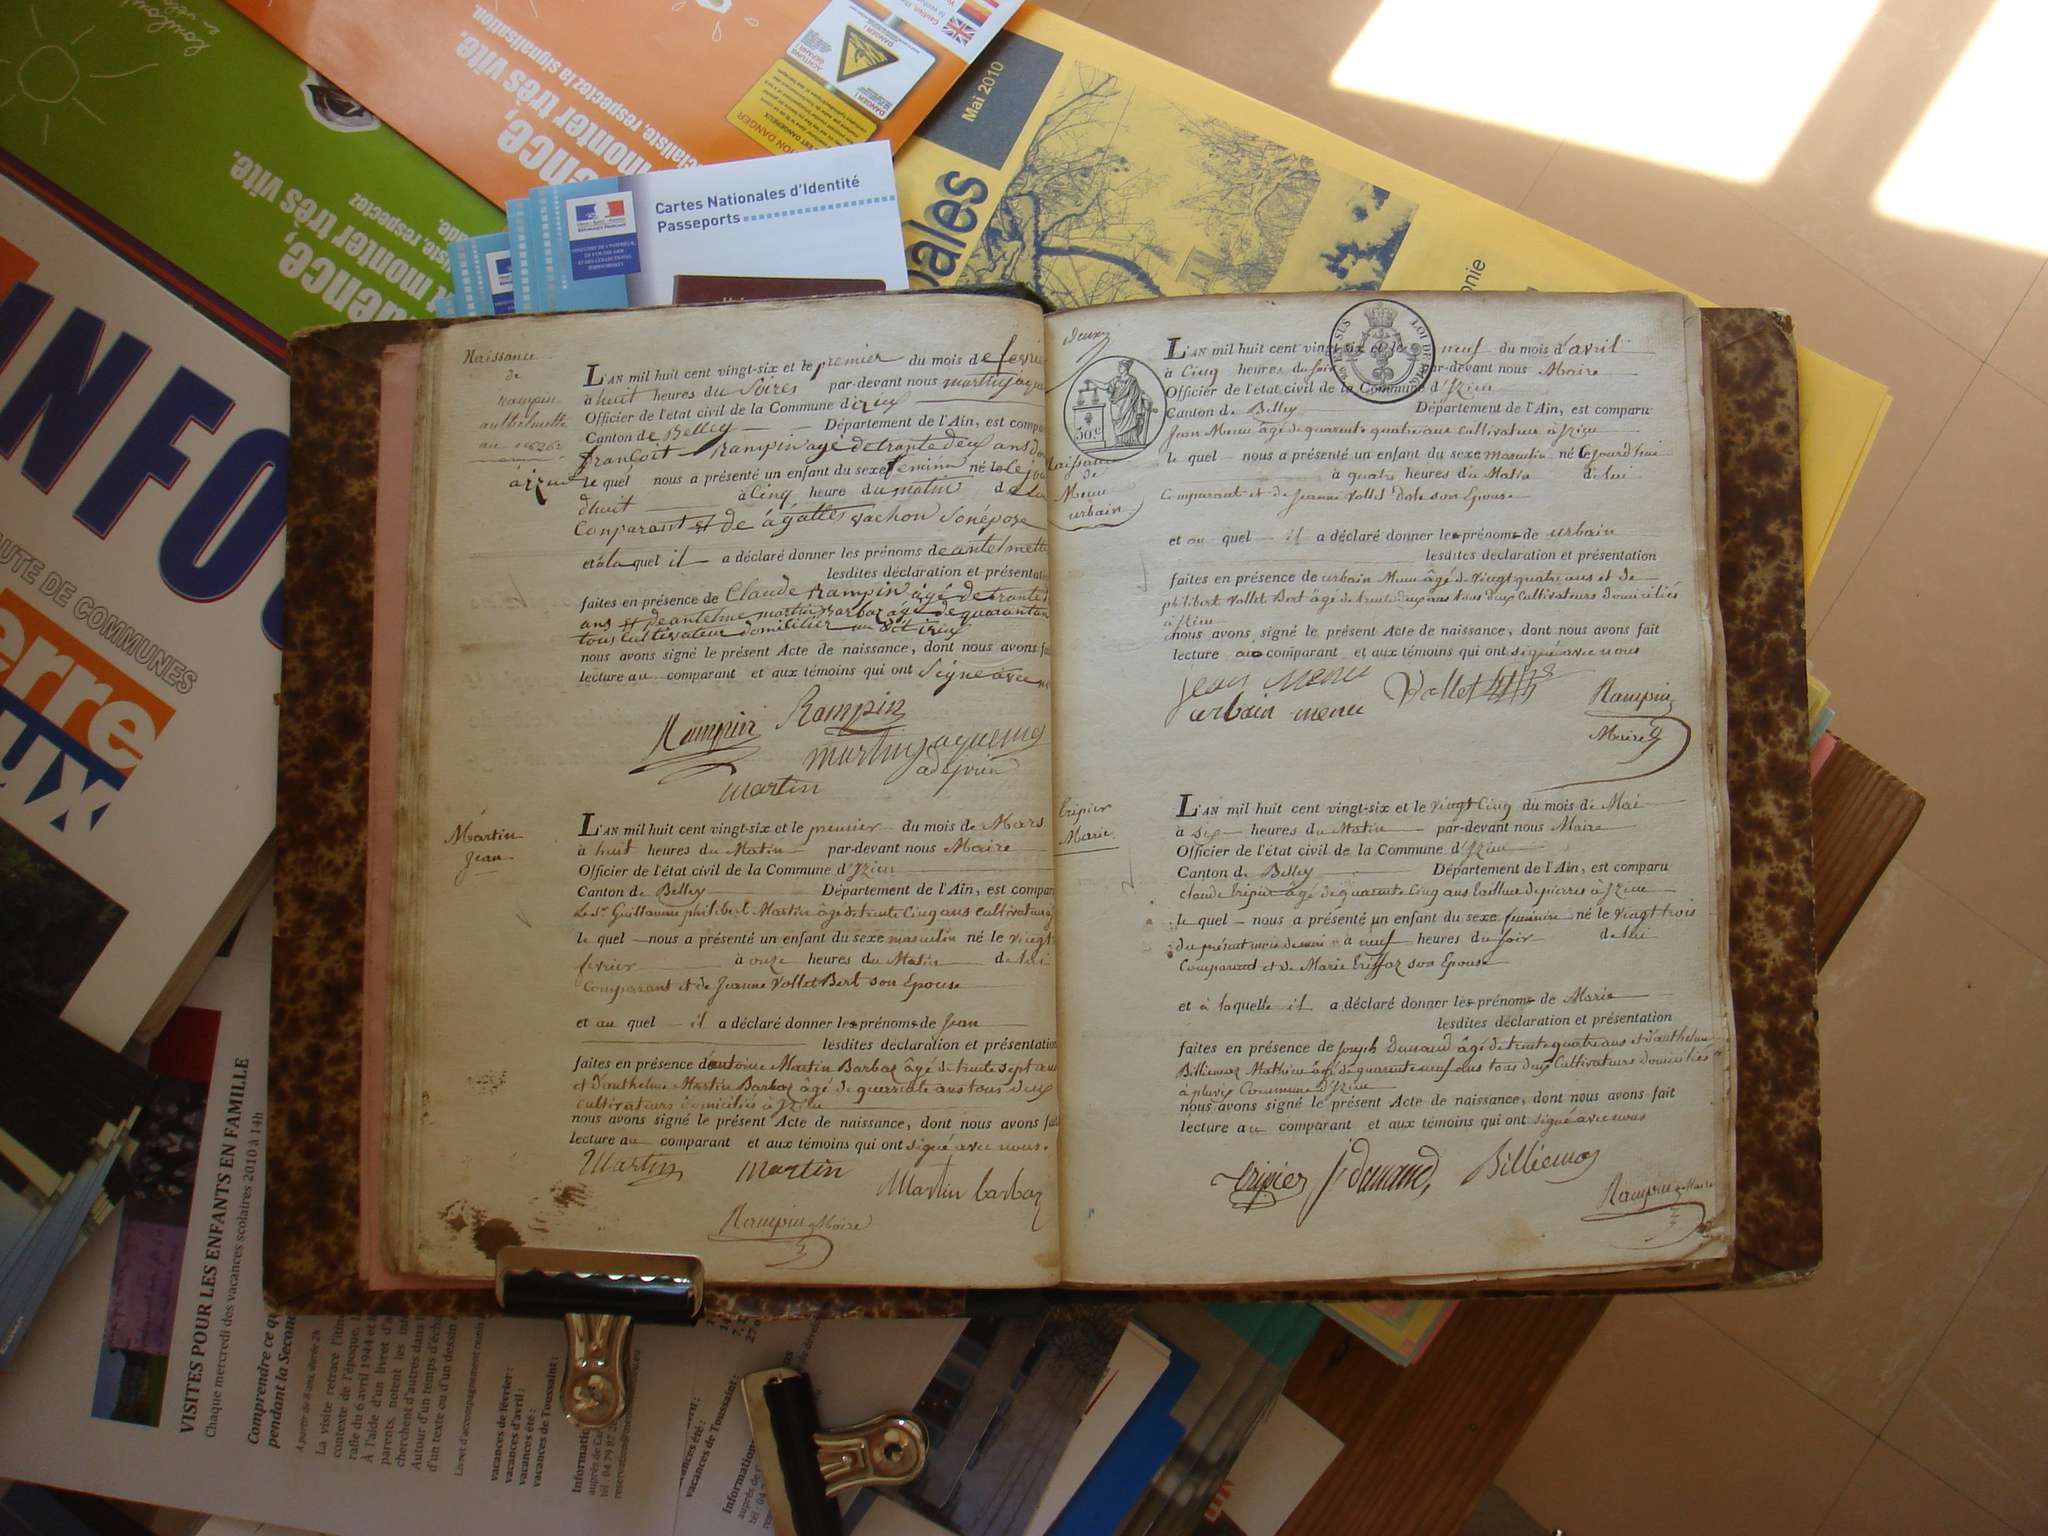 Loulou
à vélo
INFO
UTE DE COMMUNES
erre
ux
monter très vite.
dence,
à monter très vite.
ence,
monter très vite.
cialiste, respectez la signalisation.
DANGER!
Mai 2010
pales
onie
Cartes Nationales d'Identité
Passeports
Naissance
de
Rampin
anthelmette
L'AN mil huit cent vingt-six et le premier du mois de fevrie
à huit heures du Soires par-devant nous martin jaque
Officier de l'état civil de la Commune d'izieu
Canton de Belley Département de l'Ain, est compar
françoit Rampin agé de trante deux ans
à izieu le quel nous a présenté un enfant du sexe feminin né le jour
dhuit à Cinq heure du matin de lui
Comparant et de agattes vachon Son épose
et à la quel il a déclaré donner les prénoms de antelmette
lesdites déclaration et présentati
faites en présence de Claude Rampin âgé de trante
ans et de antelme martin barbaz âgé de quarante
tous cultivateur domicilier au dit izieu
nous avons signé le présent Acte de naissance, dont nous avons fa
lecture au comparant et aux témoins qui ont Signé avec no
Rampin Rampin
martin jaquemes
adjoin
martin
Martin
Jean
L'AN mil huit cent vingt-six et le premier du mois de Mars
à huit heures du Matin par-devant nous Maire
Officier de l'état civil de la Commune d'Izieu
Canton de Belley Département de l'Ain, est compar
Le Sr Guillaume philibert Martin âgé de trente Cinq ans cultivateur à
le quel nous a présenté un enfant du sexe masculin né le vingt
fevrier à onze heures du Matin de lui
Comparant et de Jeanne Vollet Bert son Epouse
et au quel il a déclaré donner les prénoms de Jean
lesdites déclaration et présentation
faites en présence d'antoine Martin Barbaz âgé de trente sept ans
et d'anthelme Martin Barbaz âgé de quarante ans tous deux
cultivateurs domiciliés à Izieu
nous avons signé le présent Acte de naissance, dont nous avons fai
lecture au comparant et aux témoins qui ont signé avec nous.
Martin martin Martin barbaz
Rampin Maire
deux
30 c
EN SUS
LOI DE
Naissance
de
Menu
urbain
L'AN mil huit cent vingt-six et le neuf du mois d'avril
à Cinq heures du soir par-devant nous Maire
Officier de l'état civil de la Commune d'Izieu
Canton de Belley Département de l'Ain, est comparu
Jean Menu âgé de quarante quatre ans cultivateur à Izieu
le quel nous a présenté un enfant du sexe masculin né le jourd'hui
à quatre heures du Matin de lui
Comparant et de Jeanne Vollet Dole son Epouse
et au quel il a déclaré donner les prénoms de urbain
lesdites déclaration et présentation
faites en présence de urbain Menu âgé de vingt quatre ans et de
philibert Vollet Bert âgé de trente deux ans tous deux Cultivateurs domiciliés
à Izieu
nous avons signé le présent Acte de naissance, dont nous avons fait
lecture au comparant et aux témoins qui ont signé avec nous
jean menu Vollet
urbain menu Rampin
Maire
tripier
Marie
L'AN mil huit cent vingt-six et le vingt Cinq du mois de Mai
à six heures du Matin par-devant nous Maire
Officier de l'état civil de la Commune d'Izieu
Canton de Belley Département de l'Ain, est comparu
claude tripier âgé de quarante Cinq ans tailleur de pierres à Izieu
le quel nous a présenté un enfant du sexe feminin né le vingt trois
du présent mois de mai à neuf heures du soir de lui
Comparant et de Marie son Epouse
et à laquelle il a déclaré donner les prénoms de Marie
lesdites déclaration et présentation
faites en présence de Joseph Dunand âgé de trente quatre ans et d'anthelme
Billiemaz Mathieu âgé de quarante neuf ans tous deux Cultivateurs domiciliés
Commune d'Izieu
nous avons signé le présent Acte de naissance, dont nous avons fait
lecture au comparant et aux témoins qui ont signé avec nous
tripier j dunand Billiemaz
Rampin Maire
VISITES POUR LES ENFANTS EN FAMILLE
Chaque mercredi des vacances scolaires 2010 à 14h
Comprendre ce qu
pendant la Second
La visite retrace l'itin
contexte de l'époque,
rafle du 6 avril 1944 et
À l'aide d'un livret d'a
parents, notent les inf
cherchent d'autres dans
Autour d'un temps d'éch
d'un texte ou d'un dessin
Livret d'accompagnement remis
vacances de février :
vacances d'avril :
vacances été :
vacances de Toussaint :
Informatio
auprès de
vacances été :
vacances de Toussaint :
Information
auprès de